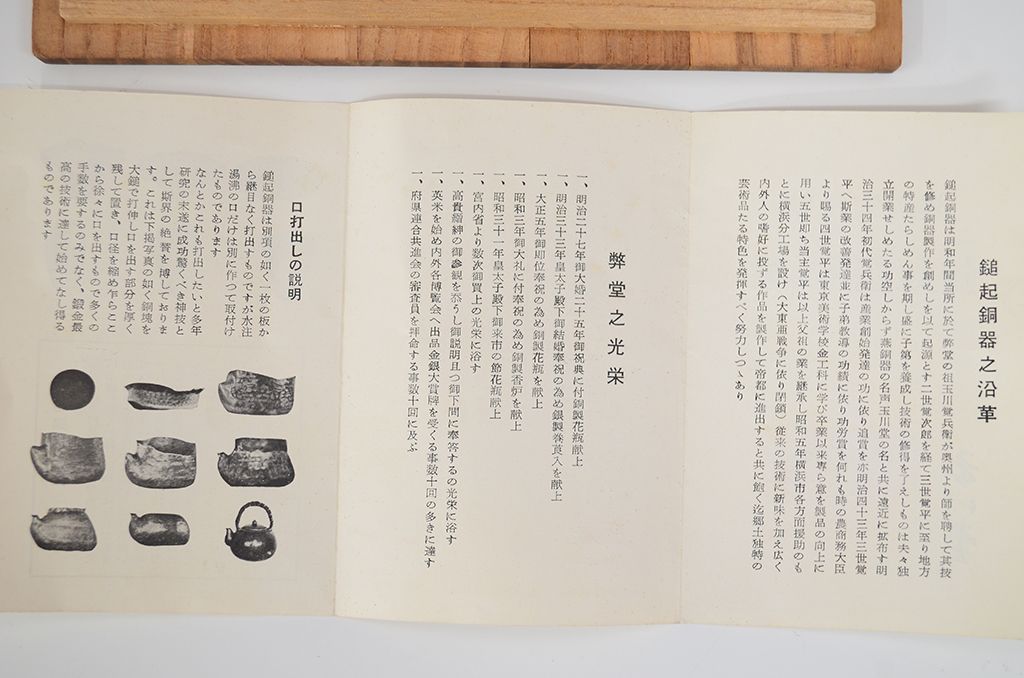 鎚起銅器之沿革
鎚起銅器は明和年間当所に於て弊堂の祖玉川覚兵衛が奥州より師を聘して其技
を修め銅器製作を創めしを以て起源とす二世覚次郎を経て三世覚平に至り地方
の特産たらしめん事を期し盛に子弟を養成し技術の修得を了えしものは夫々独
立開業せしめたる功空しからず燕銅器の名声玉川堂の名と共に遠近に拡布す明
治三十四年初代覚兵衛は産業創始発達の功に依り追賞を亦明治四十三年三世覚
平へ斯業の改善発達並に子弟教導の功績に依り功労賞を何れも時の農商務大臣
より賜る四世覚平は東京美術学校金工科に学び卒業以来専ら意を製品の向上に
用い五世即ち当主覚平は以上父祖の業を継承し昭和五年横浜市各方面援助のも
とに横浜分工場を設け（大東亜戦争に依り閉鎖）従来の技術に新味を加え広く
内外人の嗜好に投ずる作品を製作して帝都に進出すると共に飽く迄郷土独特の
芸術品たる特色を発揮すべく努力しつゝあり
弊堂之光栄
一、明治二十七年御大婚二十五年御祝典に付銅製花瓶献上
一、明治三十三年皇太子殿下御結婚奉祝の為め銀製巻莨入を献上
一、大正五年御即位奉祝の為め銅製花瓶を献上
一、昭和三年御大礼に付奉祝の為め銅製香炉を献上
一、昭和三十一年皇太子殿下御来市の節花瓶献上
一、宮内省より数次御買上の光栄に浴す
一、高貴縉紳の御参観を忝うし御説明且つ御下問に奉答するの光栄に浴す
一、英米を始め内外各博覧会へ出品金銀大賞牌を受くる事数十回の多きに達す
一、府県連合共進会の審査員を拝命する事数十回に及ぶ
口打出しの説明
鎚起銅器は別項の如く一枚の板か
ら継目なく打出すものですが水注
湯沸の口だけは別に作つて取付け
たものであります
なんとかこれも打出したいと多年
研究の末遂に成功驚くべき神技と
して斯界の絶賛を博しておりま
す。これは下掲写真の如く銅塊を
大鎚で打伸し口を出す部分を厚く
残して置き、口径を縮め乍らここ
から徐々に口を出すもので多くの
手数を要するのみでなく、鍛金最
高の技術に達して始めてなし得る
ものであります